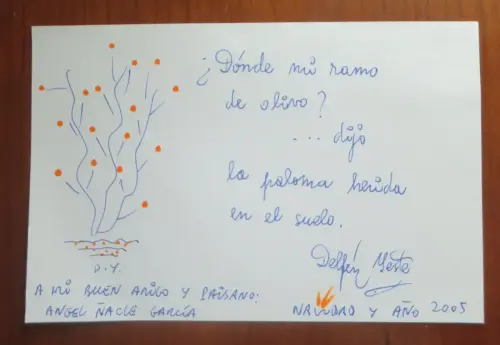 ¿Dónde mi ramo
de olivo?
... dijo
la paloma herida
en el suelo.
Delfín Yeste
D.Y.
A MI BUEN AMIGO Y PAISANO:
ANGEL ÑACLE GARCÍA
NAVIDAD Y AÑO 2005